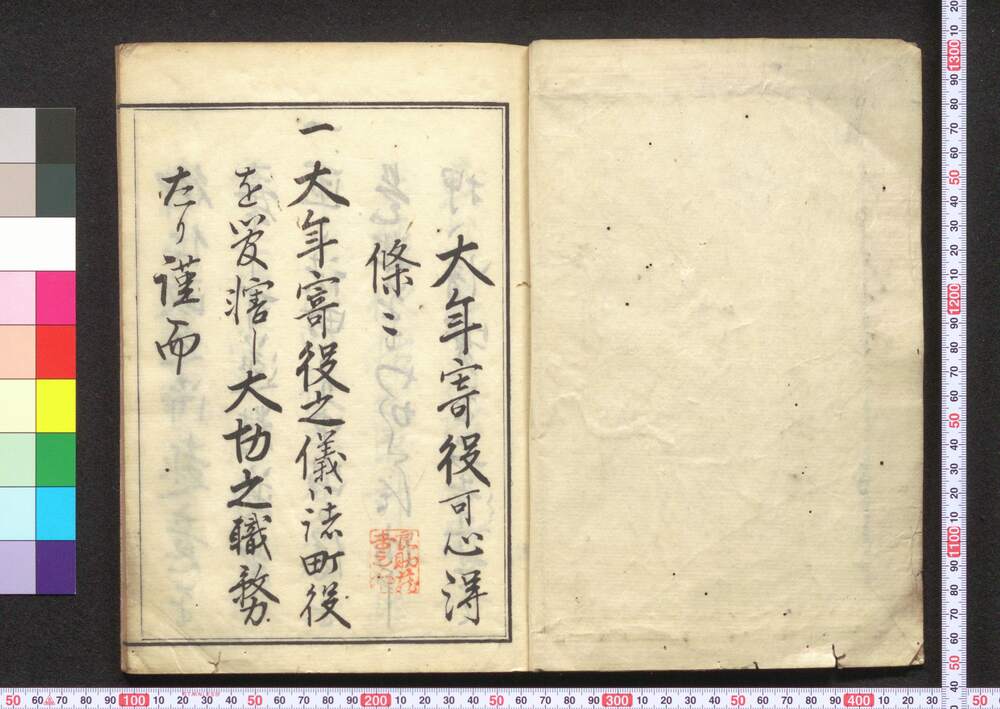 大年寄役可心得
條〻
一大年寄役之儀ハ諸町役
を管轄し大切之職務
たり謹而